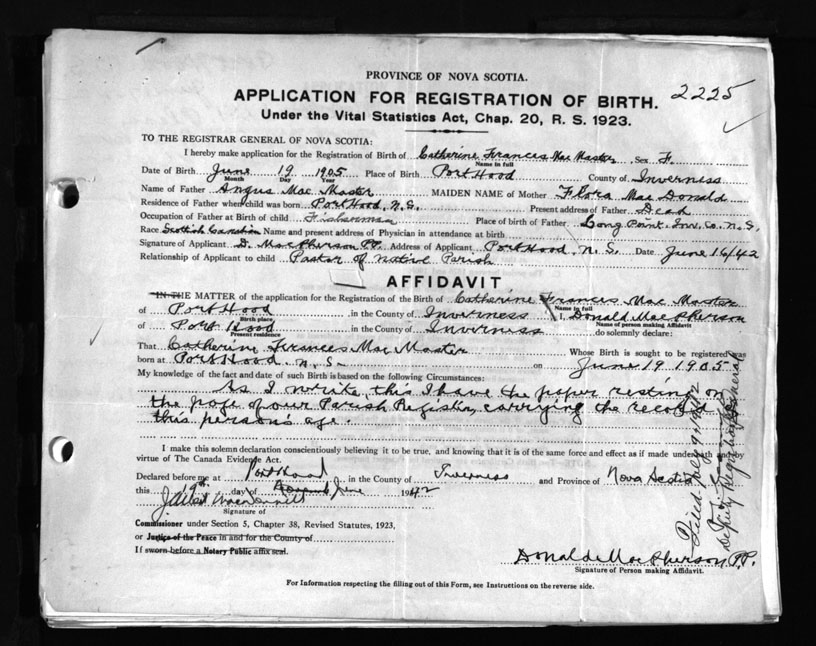 2225
PROVINCE OF NOVA SCOTIA.
APPLICATION FOR REGISTRATION OF BIRTH.
Under the Vital Statistics Act, Chap. 20, R. S. 1923.
TO THE REGISTRAR GENERAL OF NOVA SCOTIA:
I hereby make application for the Registration of Birth of Catherine Frances Mac Master Sex F.
Name in full
Date of Birth June 19 1905 Place of Birth Port Hood County of Inverness
Month Day Year
Name of Father Angus Mac Master MAIDEN NAME of Mother Flora Mac Donald
Residence of Father when child was born Port Hood, N.S. Present address of Father Dead
Occupation of Father at Birth of child Fisherman Place of birth of Father Long Point. Inv. Co. N.S.
Race Scottish Canadian Name and present address of Physician in attendance at birth
Signature of Applicant D. MacPherson P.P. Address of Applicant Port Hood, N.S. Date June 16/42
Relationship of Applicant to child Pastor of native Parish
AFFIDAVIT
IN THE MATTER of the application for the Registration of the Birth of Catherine Frances Mac Master
Name in full
of Port Hood in the County of Inverness I, Donald MacPherson
Birth place Name of person making Affidavit
of Port Hood in the County of Inverness do solemnly declare:
Present residence
That Catherine Frances Mac Master Whose Birth is sought to be registered was
born at Port Hood. N.S. on June 19 1905
My knowledge of the fact and date of such Birth is based on the following Circumstances:
As I write this I have the paper resting on
the page of our Parish Register, carrying the record of
this person's age.
I make this solemn declaration conscientiously believing it to be true, and knowing that it is of the same force and effect as if made under oath and by
virtue of The Canada Evidence Act.
Declared before me at Port Hood in the County of Inverness and Province of Nova Scotia
this 19th day of June 1942
Signature of
Commissioner under Section 5, Chapter 38, Revised Statutes, 1923,
or Justice of the Peace in and for the County of
If sworn before a Notary Public affix seal.
Donald MacPherson P.P.
Signature of Person making Affidavit.
For Information respecting the filling out of this Form, see Instructions on the reverse side.
Filed
Deputy Registrar General